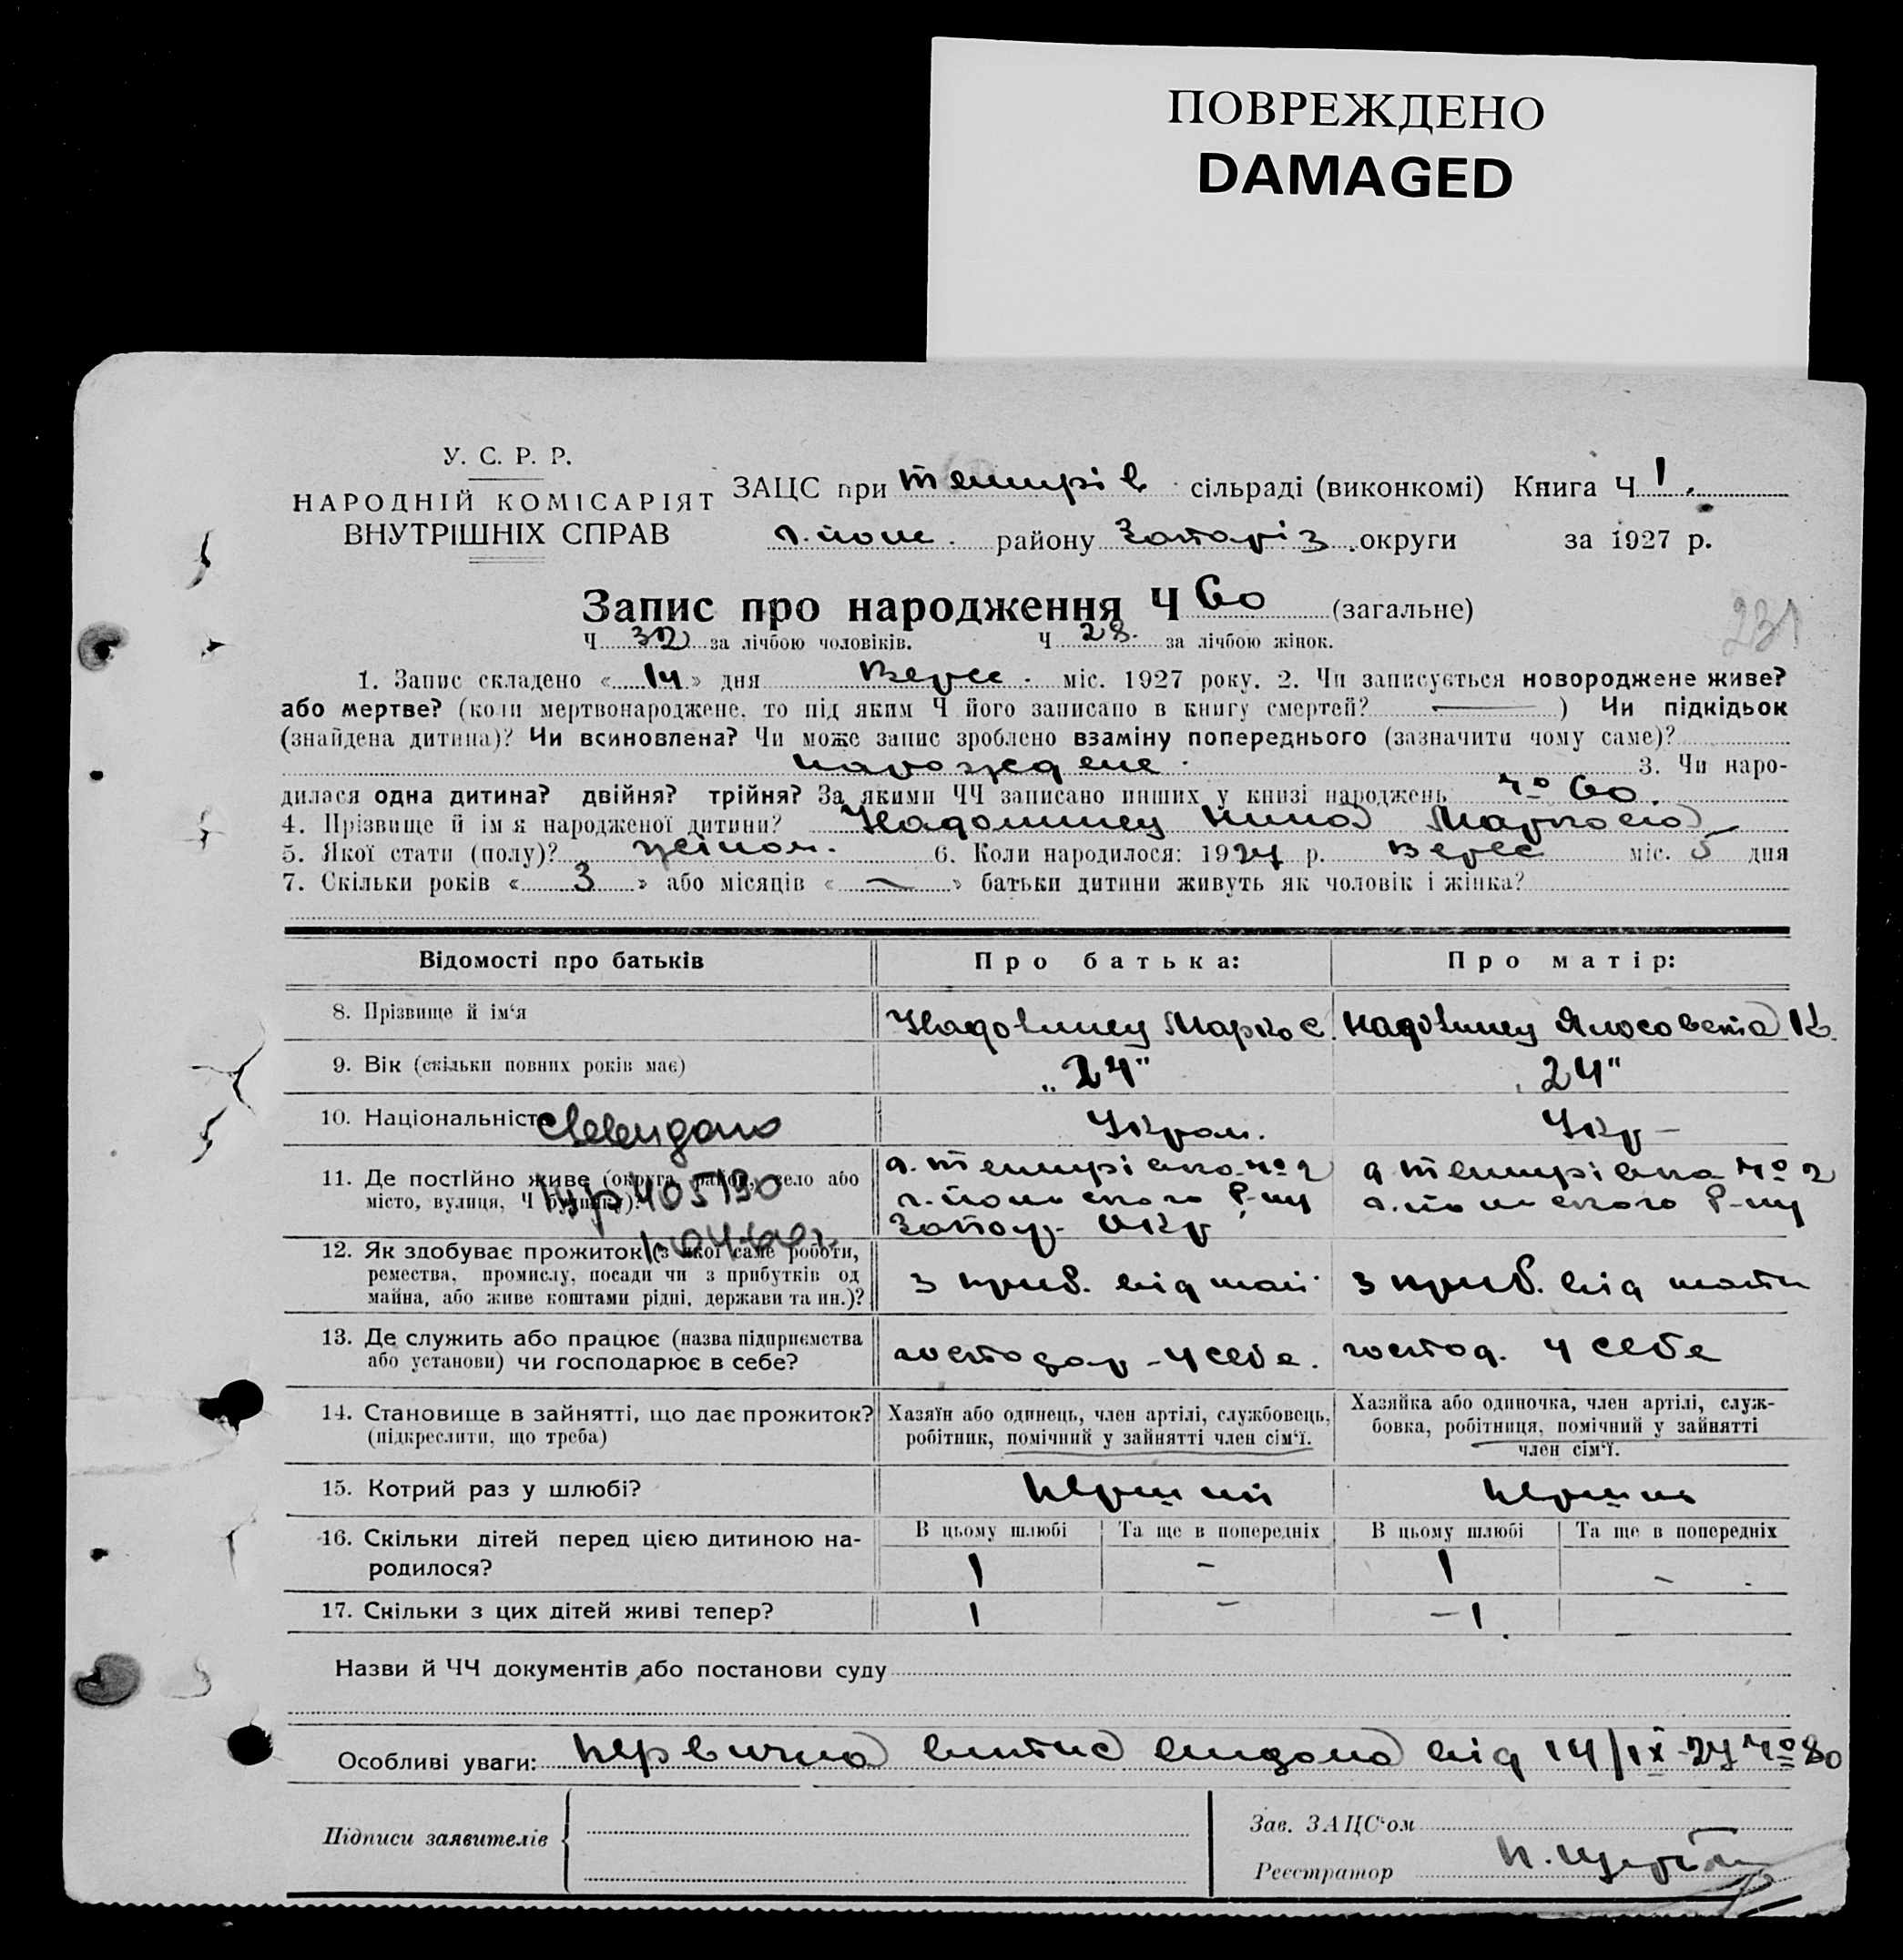 ПОВРЕЖДЕНО
DAMAGED
У. С. Р. Р.
НАРОДНІЙ КОМІСАРІЯТ
ВНУТРІШНІХ СПРАВ
ЗАЦС при сільраді (виконкомі) Книга Ч 1.
району Запоріз. округи за 1927 р.
Запис про народження Ч 60 (загальне)
231
Ч 32 за лічбою чоловіків. Ч 28. за лічбою жінок.
1. Запис складено «14» дня Верес. міс. 1927 року. 2. Чи записується новороджене живе?
або мертве? (коли мертвонароджене, то під яким Ч його записано в книгу смертей? —) Чи підкідьок
(знайдена дитина)? Чи всиновлена? Чи може запис зроблено взаміну попереднього (зазначити чому саме)?
народжене. 3. Чи наро-
дилася одна дитина? двійня? трійня? За якими ЧЧ записано инших у книзі народжень № 60.
4. Прізвище й ім'я народженої дитини? Нина Марковна
5. Якої стати (полу)? жіноч. 6. Коли народилося: 1927 р. Верес міс. 5 дня
7. Скільки років «3» або місяців «—» батьки дитини живуть як чоловік і жінка?
Відомості про батьків Про батька: Про матір:
8. Прізвище й ім'я Марко С.
9. Вік (скільки повних років має) „24" „24"
10. Національність Украл. Укр –
11. Де постійно живе (округа, район, село або
місто, вулиця, Ч будинку)?
Запор. Окр
12. Як здобуває прожиток (з якої саме роботи,
ремества, промислу, посади чи з прибутків од
майна, або живе коштами рідні, держави та ин.)? з приб. від з приб. від
13. Де служить або працює (назва підприємства
або установи) чи господарює в себе? господар – у себе. господ. у себе
14. Становище в зайнятті, що дає прожиток?
(підкреслити, що треба)
Хазяїн або одинець, член артілі, службовець,
робітник, помічний у зайнятті член сім'ї.
Хазяйка або одиночка, член артілі, служ-
бовка, робітниця, помічний у зайнятті
член сім'ї.
15. Котрий раз у шлюбі? перший перший
16. Скільки дітей перед цією дитиною на-
родилося?
В цьому шлюбі Та ще в попередніх В цьому шлюбі Та ще в попередніх
1 – 1 –
17. Скільки з цих дітей живі тепер? 1 – – 1
Назви й ЧЧ документів або постанови суду
Особливі уваги: первична випис видана від 14/IX-27 № 80
Підписи заявителів
Зав. ЗАЦС'ом
Реєстратор